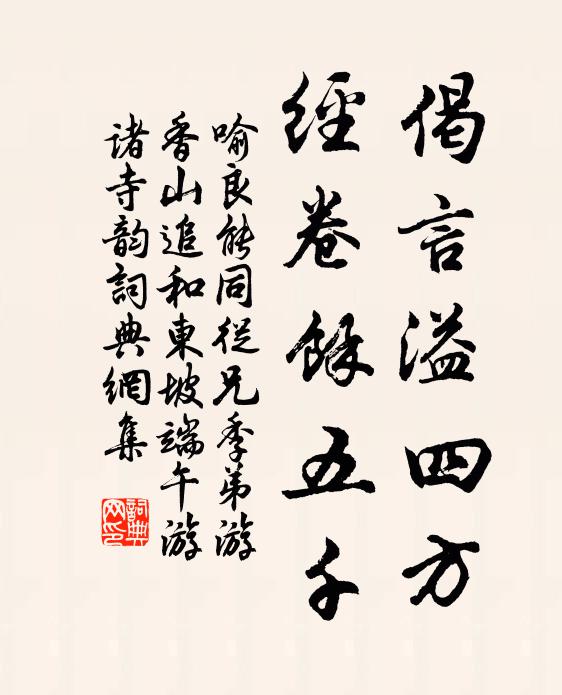 偈言溢四方
經卷餘五千
喻良能同從兄季弟游
香山追和東坡端午游
諸寺韵詞典網集
詞典
网印